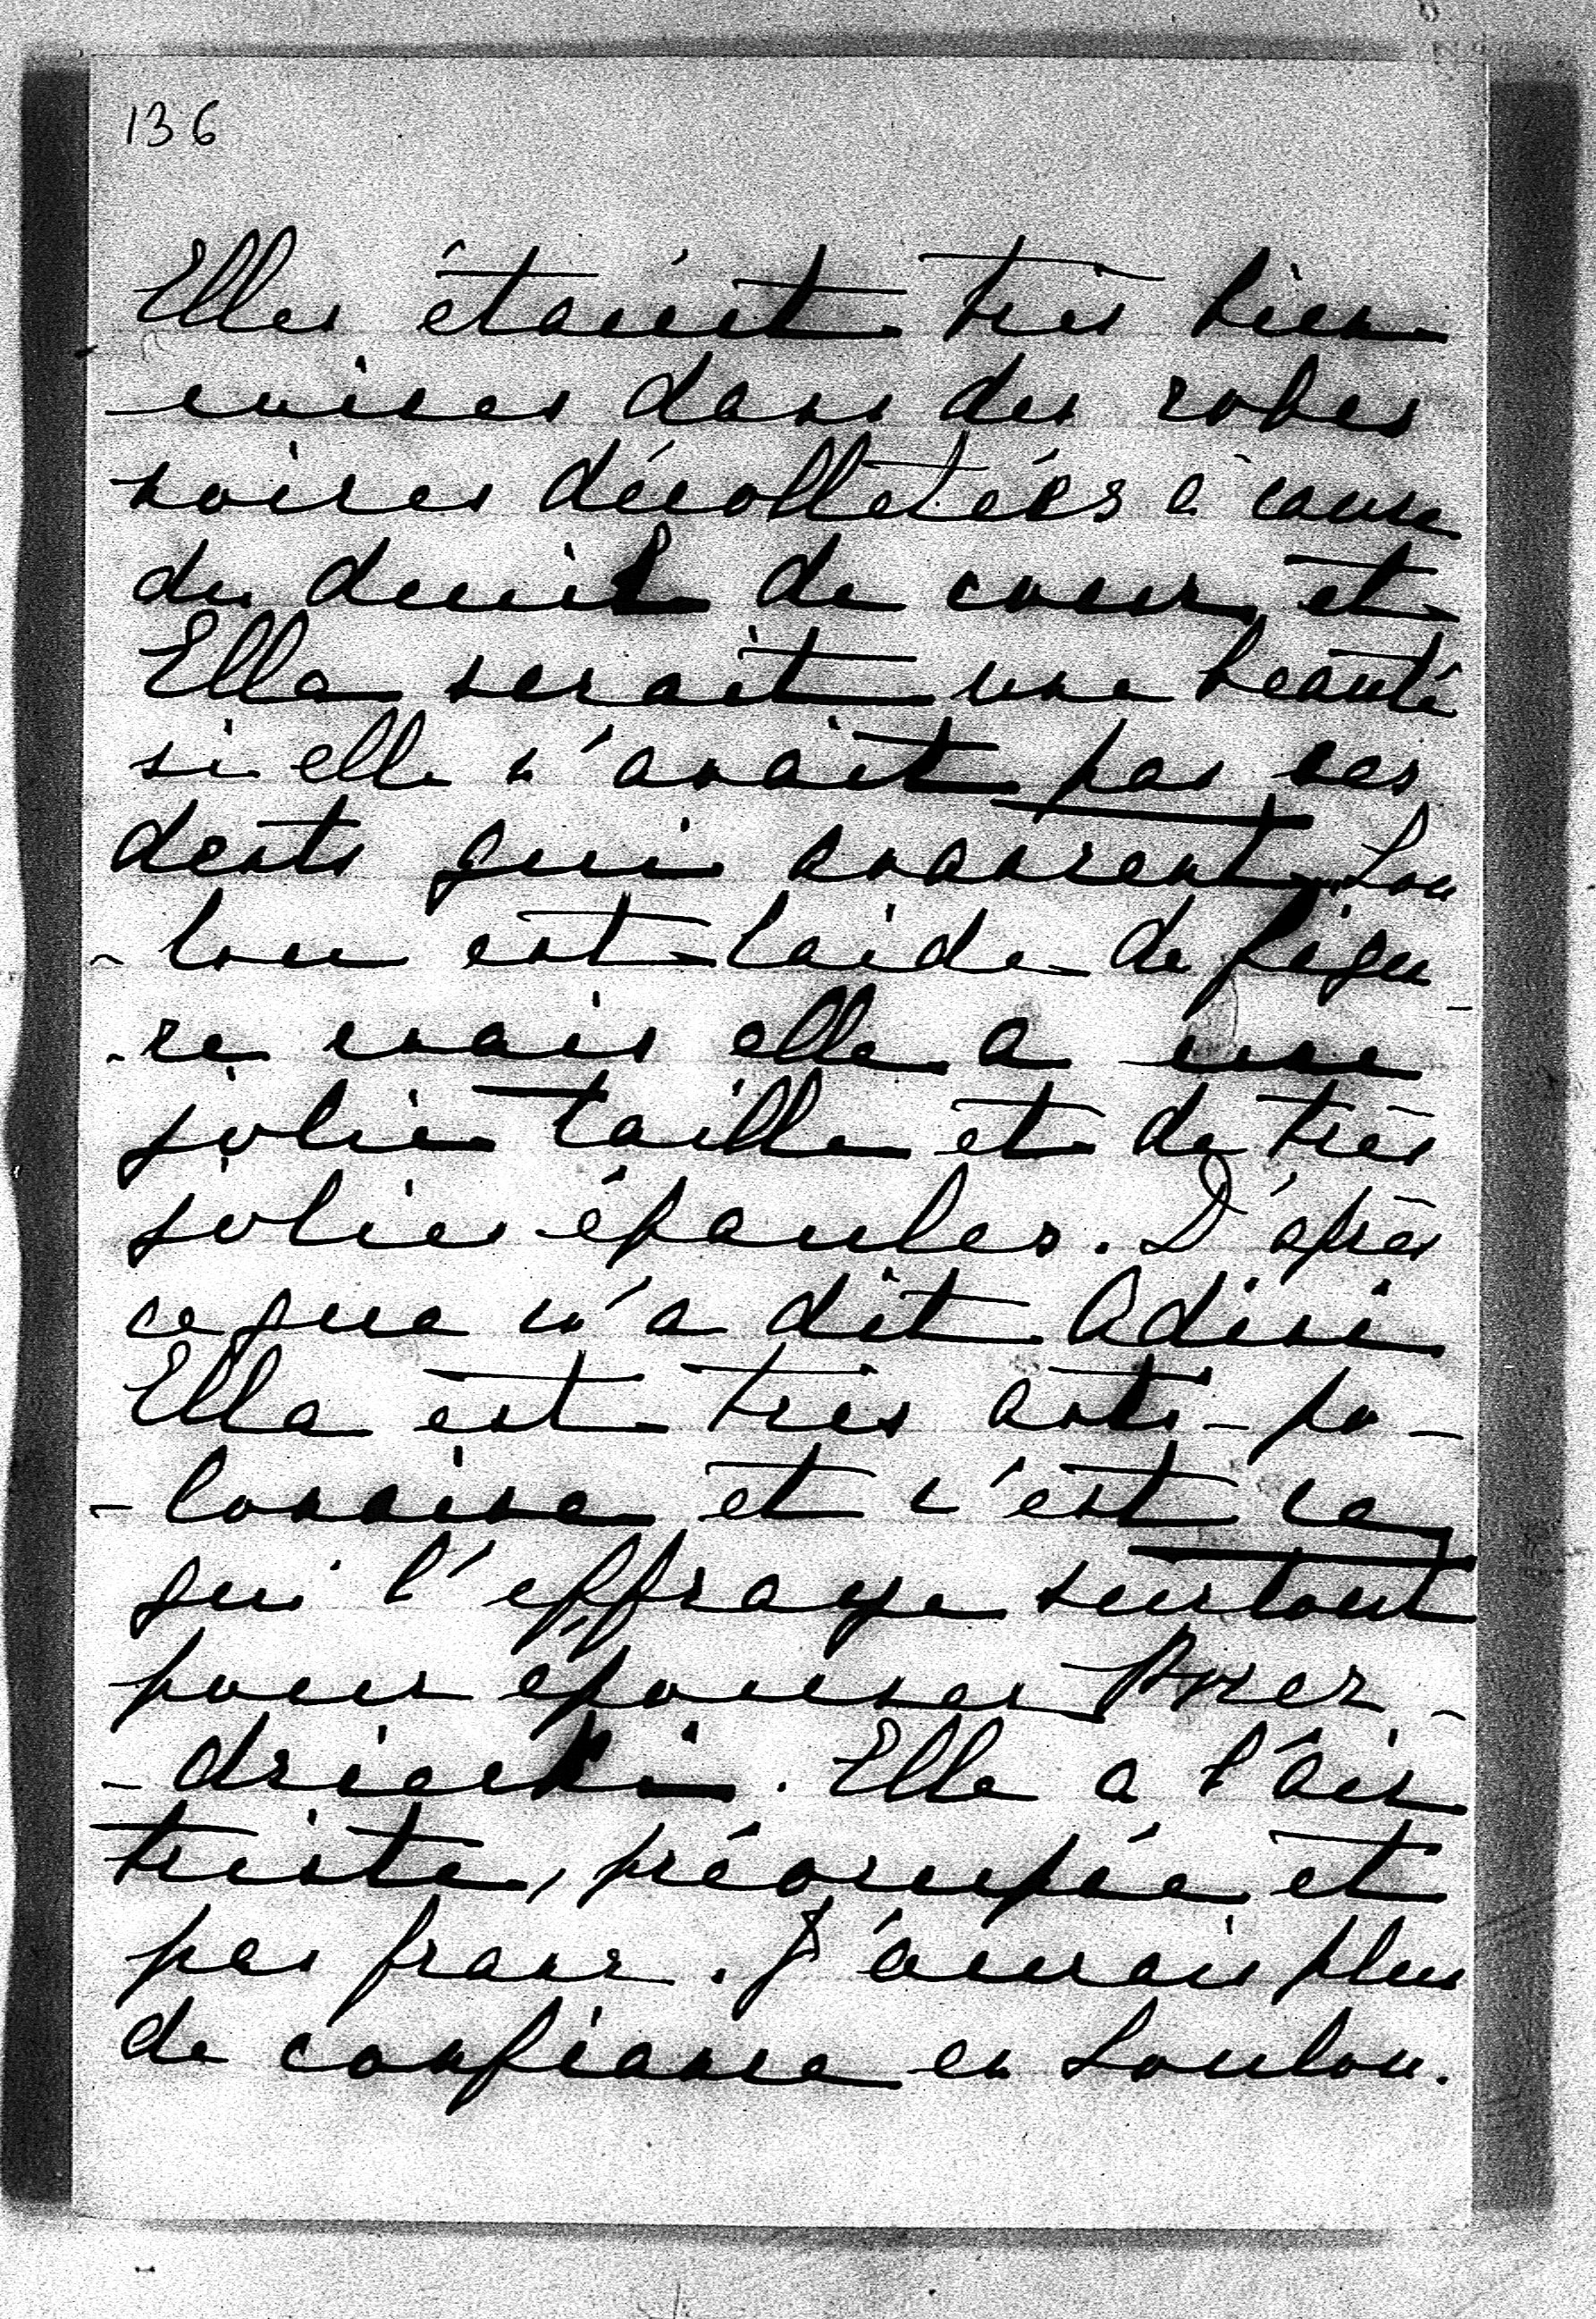 136
Elles étaient très bien
mises dans des robes
noires décolletées à cause
du deuil de cour et
Ella serait une beauté
si elle n'avait pas ses
dents qui avancent. Lou
-lou est laide de figu-
-re mais elle a une
jolie taille et de très
jolies épaules. D'après
ce que m'a dit Adini
Ella est très anti-po-
-lonaise et c'est ce
qui l'effraye surtout
pour épouser
Elle a l'air
triste, préocupée et
pas franc. J'aurais plus
de confiance en Loulou.